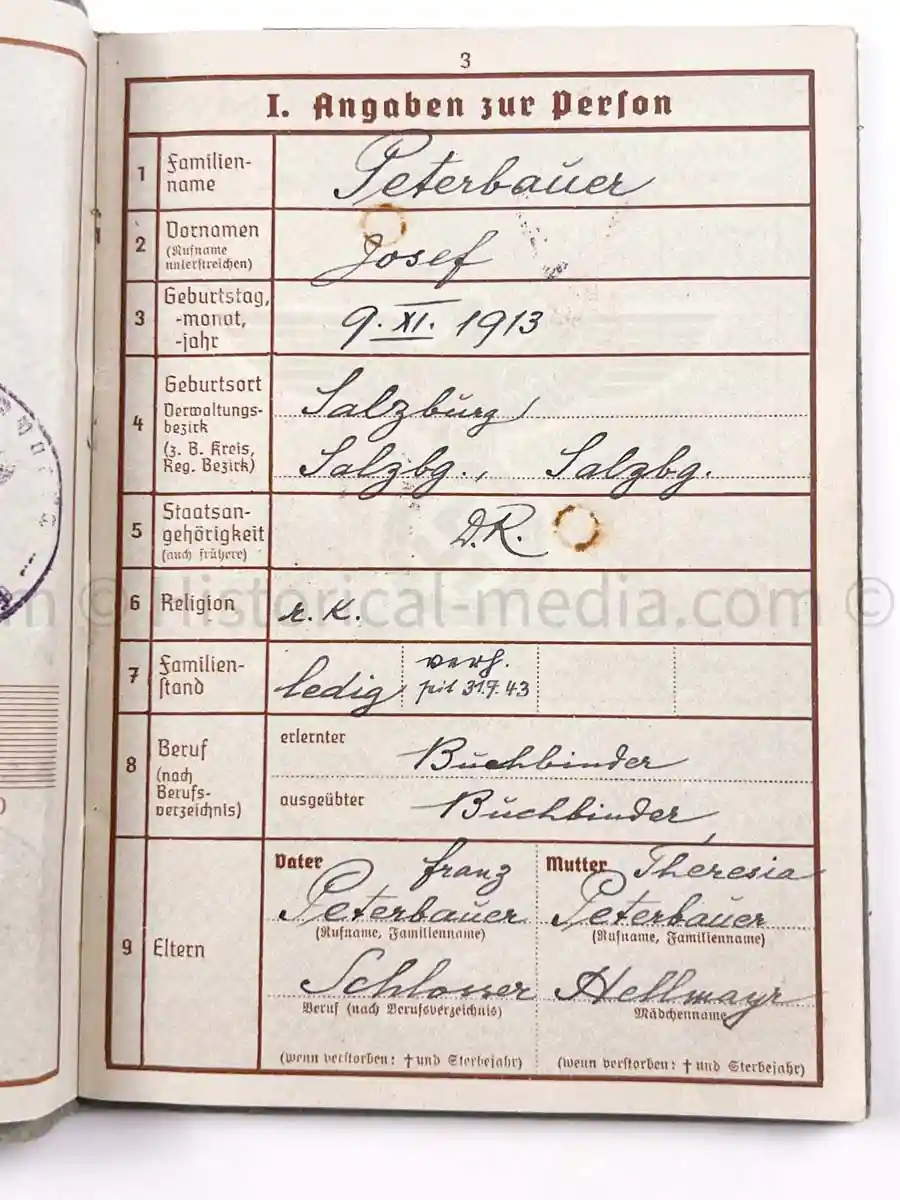 3
I. Angaben zur Person
1 Familien-
name
Peterbauer
2 Vornamen
(Rufname
unterstreichen)
Josef
3 Geburtstag,
-monat,
-jahr
9. XI. 1913
4 Geburtsort
Verwaltungs-
bezirk
(z. B. Kreis,
Reg. Bezirk)
Salzburg,
Salzbg., Salzbg.
5 Staatsan-
gehörigkeit
(auch frühere)
D.R.
6 Religion
r. k.
© Historical-media.com ©
7 Familien-
stand
ledig
verh.
seit 31.7.43
8 Beruf
(nach
Berufs-
verzeichnis)
erlernter Buchbinder
ausgeübter Buchbinder
9 Eltern
Vater Franz
Peterbauer
(Rufname, Familienname)
Schlosser
Beruf (nach Berufsverzeichnis)
(wenn verstorben: † und Sterbejahr)
Mutter Theresia
Peterbauer
(Rufname, Familienname)
Hellmayr
Mädchenname
(wenn verstorben: † und Sterbejahr)